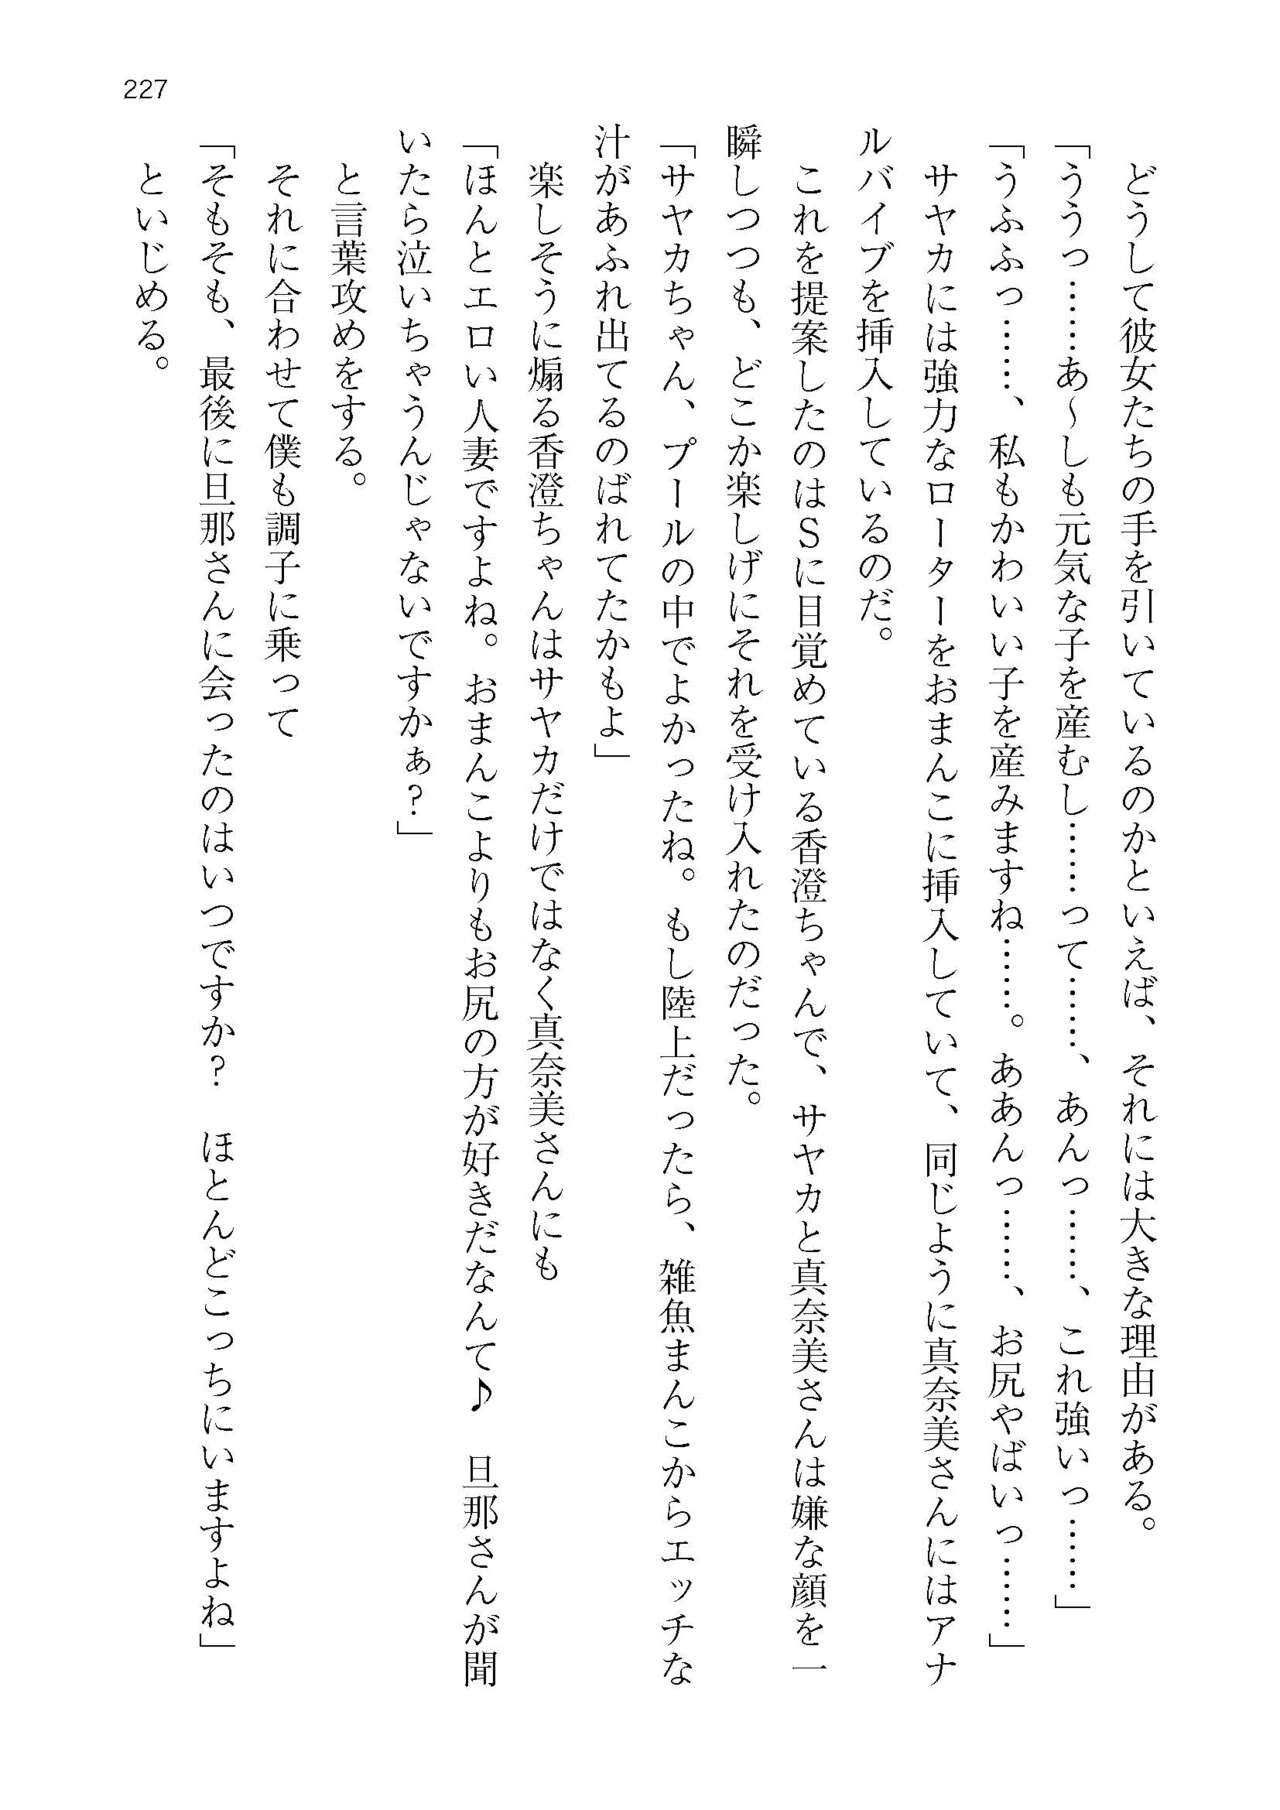 227
どうして彼女たちの手を引いているのかといえば、それには大きな理由がある。
「ううっ……あ～しも元気な子を産むし……って……、あんっ……、これ強いっ……」
「うふふっ……、私もかわいい子を産みますね……。ああんっ……、お尻やばいっ……」
サヤカには強力なローターをおまんこに挿入していて、同じように真奈美さんにはアナ
ルバイブを挿入しているのだ。
これを提案したのはＳに目覚めている香澄ちゃんで、サヤカと真奈美さんは嫌な顔を一
瞬しつつも、どこか楽しげにそれを受け入れたのだった。
「サヤカちゃん、プールの中でよかったね。もし陸上だったら、雑魚まんこからエッチな
汁があふれ出てるのばれてたかもよ」
楽しそうに煽る香澄ちゃんはサヤカだけではなく真奈美さんにも
「ほんとエロい人妻ですよね。おまんこよりもお尻の方が好きだなんて♪　旦那さんが聞
いたら泣いちゃうんじゃないですかぁ？」
と言葉攻めをする。
それに合わせて僕も調子に乗って
「そもそも、最後に旦那さんに会ったのはいつですか？　ほとんどこっちにいますよね」
といじめる。